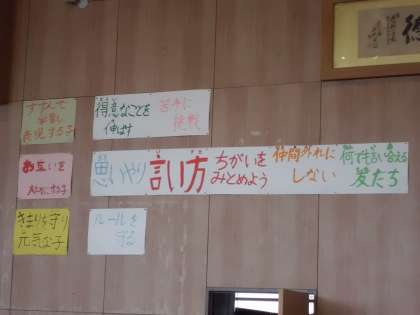 すすんで
学習し
表現する子
得意なことを
伸ばす
苦手に
挑戦
お互いを
大切にする子
思いやり
言い方
ちがいを
みとめよう
仲間外れに
しない
何でも言い合える
友だち
きまりを守り
元気な子
ルールを
守る
徳